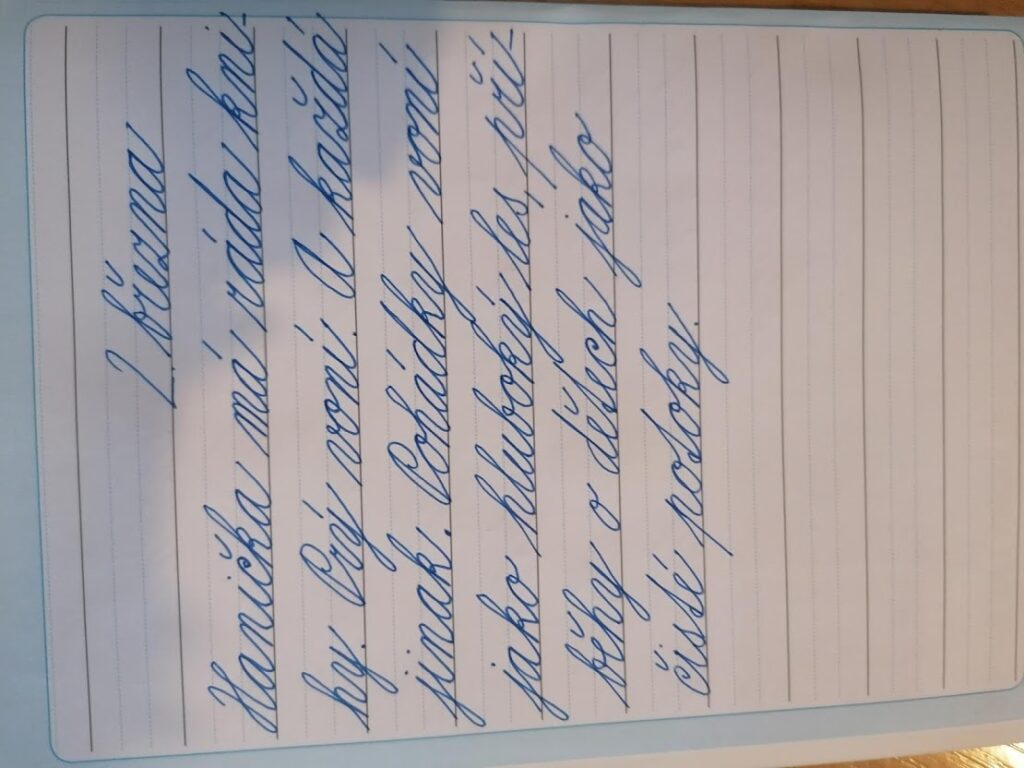 2. března
Hanička má ráda kni-
hy. Prý voní. A každá
jinak. Pohádky voní
jako hluboký les, pří-
běhy o dětech jako
čisté potoky.